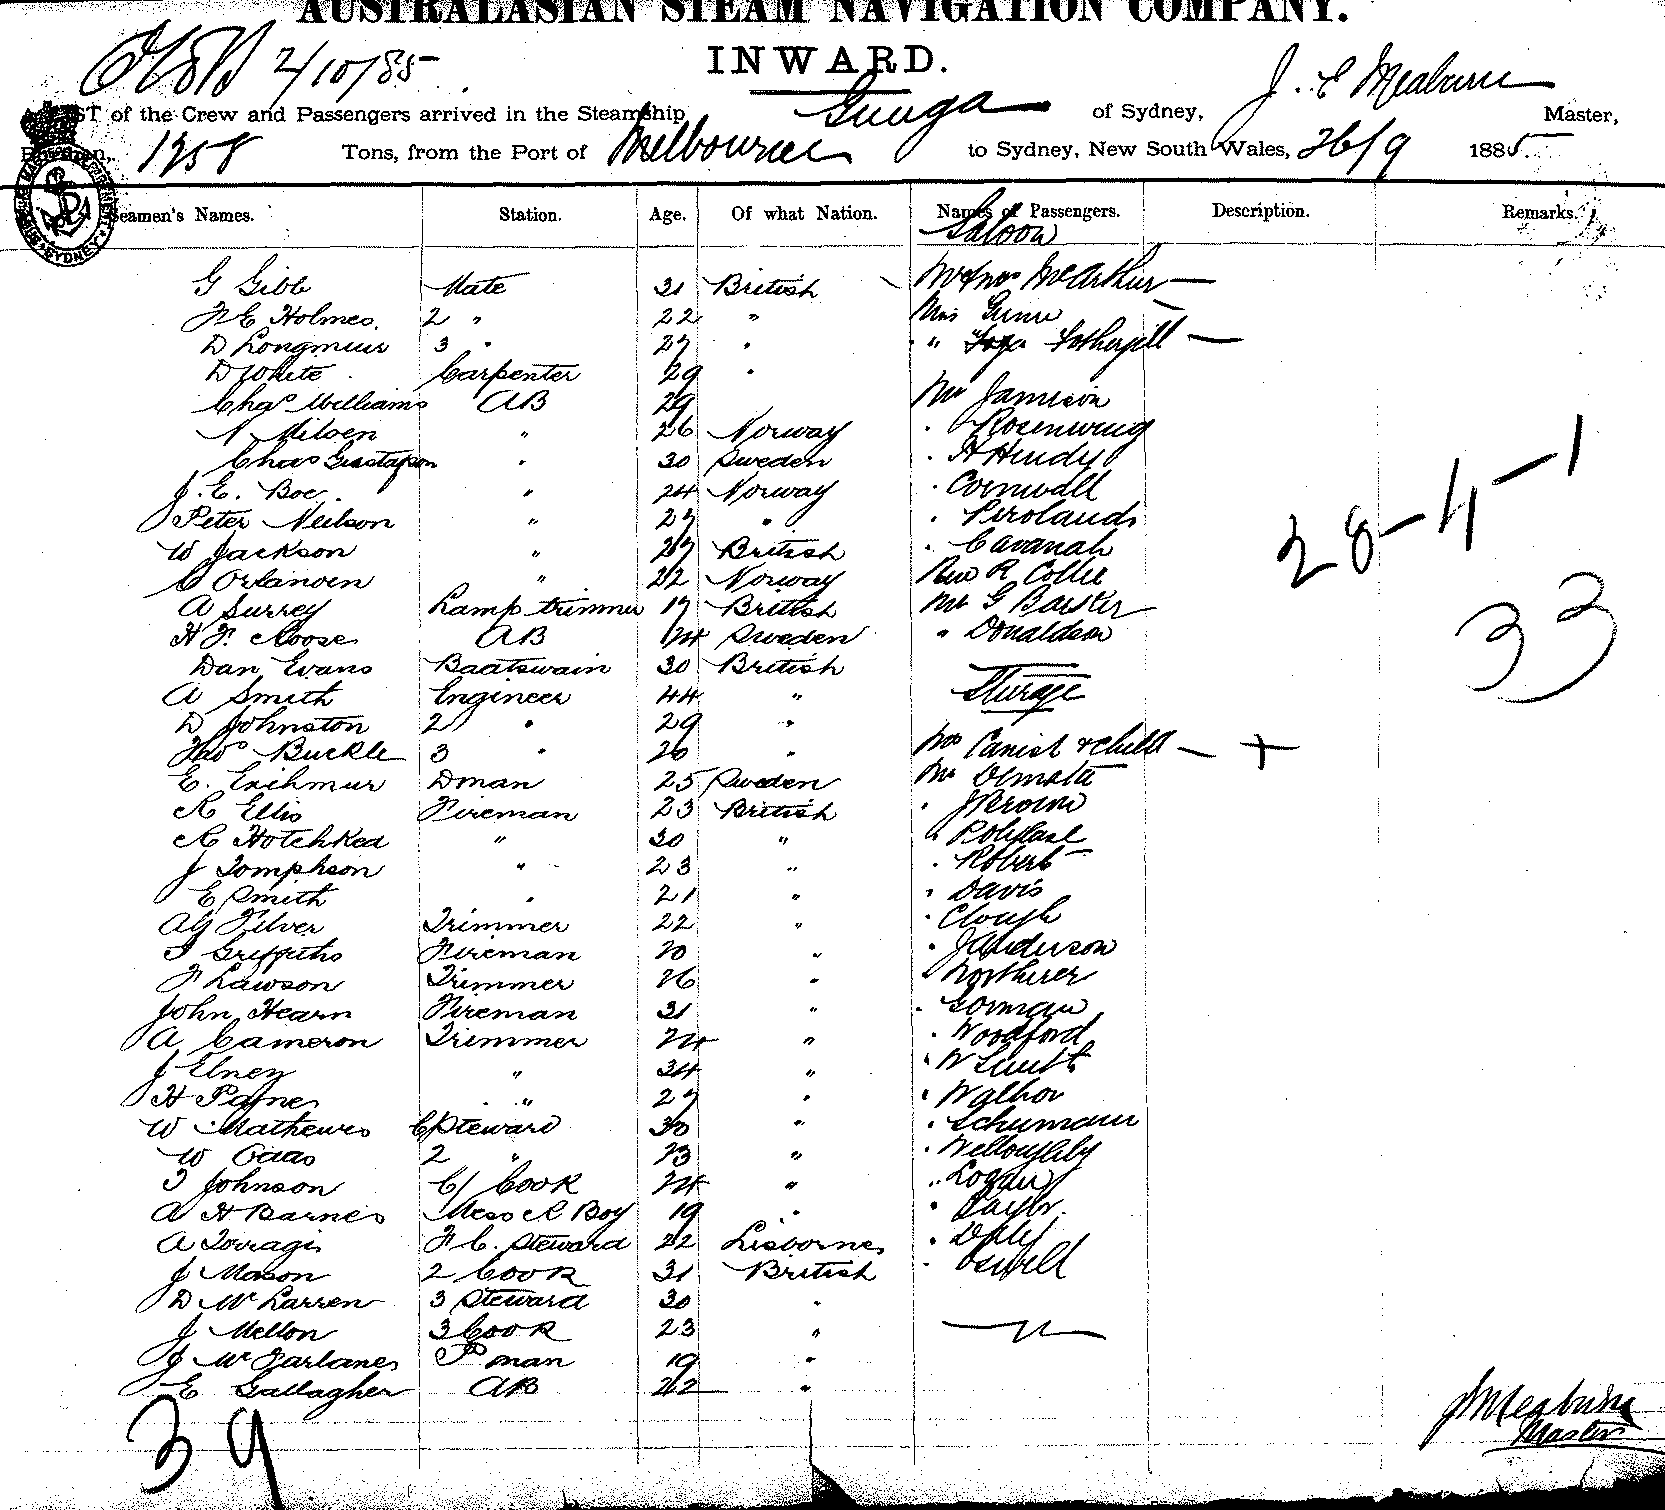 AUSTRALASIAN STEAM NAVIGATION COMPANY.
2/10/85
INWARD.
J. E Meaburn
LIST of the Crew and Passengers arrived in the Steamship Gunga of Sydney, Master,
1258 Tons, from the Port of Melbourne to Sydney, New South Wales, 26/9 1885.
Seamen's Names. Station. Age. Of what Nation. Names of Passengers. Description. Remarks.
Saloon
G Gibb Mate 31 British Mr & Mrs McArthur —
F E Holmes. 2 " 22 " Miss Gunn
D Longmuir 3 " 27 " " Fothergill —
D White Carpenter 29 "
Chas Williams AB 29 Mr Jamieson
N Nilsen " 26 Norway " Rosenwing
Chas Gustafson " 30 Sweden " H Hendy
J. E. Boe. " 24 Norway " Cornwall
Peter Neilson " 27 " "
W Jackson " 27 British " Cavanah
C " 22 Norway Rev R Collie
A Surrey Lamp trimmer 17 British Mr G Barker
H F. Roose AB 24 Sweden " Donaldson
Dan Evans Boatswain 30 British
A Smith Engineer 44 " Sturage
D Johnston 2 " 29 "
Thos Buckle 3 " 26 " Mrs & Child — +
E. Dman 25 Sweden Mr
R Ellis Fireman 23 British " J Brown
R Hotchked " 30 " "
J Tomphson " 23 " " Robert
E Smith " 21 " " Davis
AG Filver Trimmer 22 " " Clough
T Griffiths Fireman 20 " " J Anderson
F Lawson Trimmer 26 " "
John Hearn Fireman 31 " " Gorman
A Cameron Trimmer 24 " " Woodford
J Elney " 34 " " W Smith
H Payne " 27 " "
W Mathews C Steward 30 " " Schumann
W 2 " 23 " " Willoughby
T Johnson C/ Cook 24 " " Logan
A H Barnes Mess R Boy 19 " " Taylor.
A Torragi F C. Steward 22 Lisborne " Daly
J Mason 2 Cook 31 British "
D McLarren 3 Steward 30 "
J Mellon 3 Cook 23 "
J McFarlane P man 19 "
E Gallagher AB 22 "
28 - 4 - 1
33
39
J Meaburn
Master